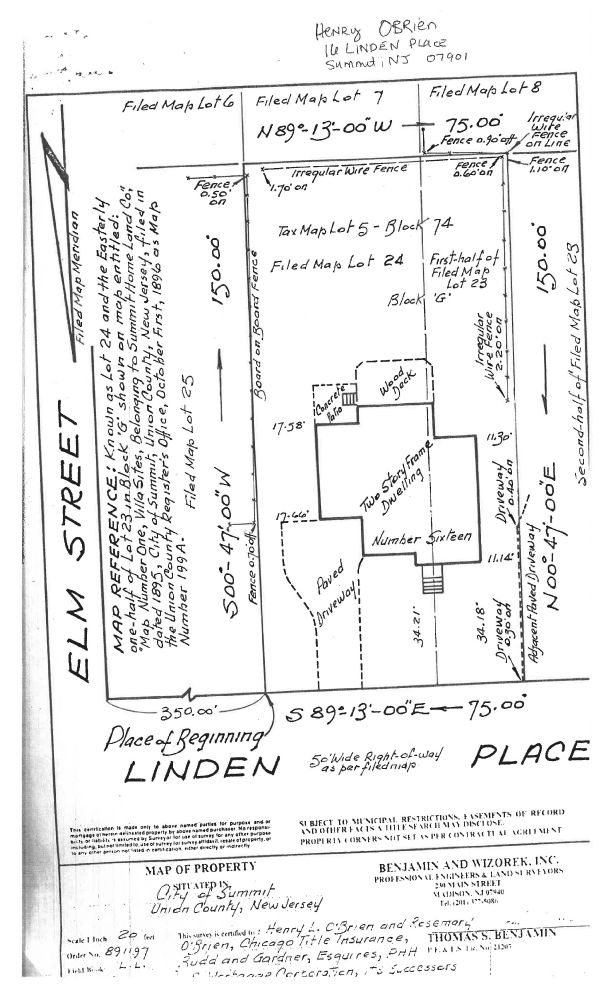 HENRY OBRIEN
16 LINDEN PLACE
Summit, NJ 07901
Filed Map Lot 6
Filed Map Lot 7
Filed Map Lot 8
N 89°-13'-00" W
75.00'
Irregular
Wire
Fence
on Line
Fence 0.90' off
Irregular Wire Fence
Fence
0.50'
on
1.70' on
Fence
0.60' on
Fence
1.10' on
Filed Map Meridian
Tax Map Lot 5 - Block 74
Filed Map Lot 24
First-half of
Filed Map
Lot 23
Block 'G'
150.00'
S00°-47'-00" W
Board on Board Fence
Fence 0.70' off
150.00'
N00°-47'-00" E
Second-half of Filed Map Lot 23
Irregular
Wire Fence
2.20' on
ELM STREET
MAP REFERENCE: Known as Lot 24 and the Easterly
one-half of Lot 23 in Block 'G' shown on map entitled:
"Map Number One, Villa Sites, Belonging to Summit Home Land Co.,"
dated 1895, City of Summit, Union County, New Jersey, filed in
the Union County Register's Office, October First, 1896 as Map
Number 199A.
Filed Map Lot 25
Concrete
Patio
Wood
Deck
17.58'
11.30'
Two Story Frame
Dwelling
17.66'
Number Sixteen
11.14'
Driveway
0.40' on
Paved
Driveway
34.21'
34.18'
Driveway
0.30' on
Adjacent Paved Driveway
350.00'
S 89°-13'-00" E
75.00'
Place of Beginning
LINDEN PLACE
50' Wide Right-of-way
as per filed map
This certification is made only to above named parties for purpose and/or
mortgage of herein delineated property by above named purchaser. No responsi-
bility or liability is assumed by Surveyor for use of survey for any other purpose
including, but not limited to, use of survey for survey affidavit, resale of property, or
to any other person not listed in certification, either directly or indirectly.
SUBJECT TO MUNICIPAL RESTRICTIONS, EASEMENTS OF RECORD
AND OTHER FACTS A TITLE SEARCH MAY DISCLOSE.
PROPERTY CORNERS NOT SET AS PER CONTRACTUAL AGREEMENT
MAP OF PROPERTY
SITUATED IN
City of Summit
Union County, New Jersey
BENJAMIN AND WIZOREK, INC.
PROFESSIONAL ENGINEERS & LAND SURVEYORS
230 MAIN STREET
MADISON, NJ 07940
Tel. (201) 377-5086
Scale 1 Inch 20 feet
Order No. 891197
Field Book L.L.
This survey is certified to: Henry L. O'Brien and Rosemary
O'Brien, Chicago Title Insurance,
Rudd and Gardner, Esquires, PHH
Mortgage Corporation, its Successors
THOMAS S. BENJAMIN
P.E. & L.S. Lic. No. 21207